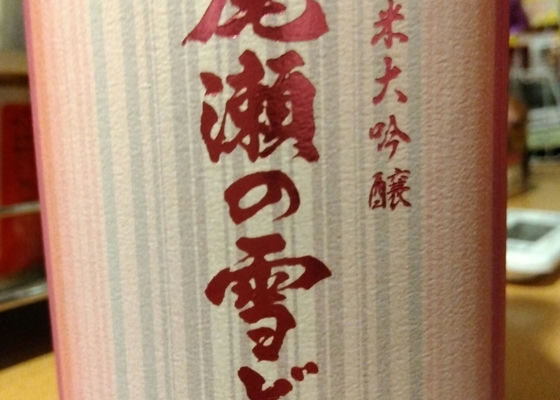 尾瀬の雪ど
米大吟醸